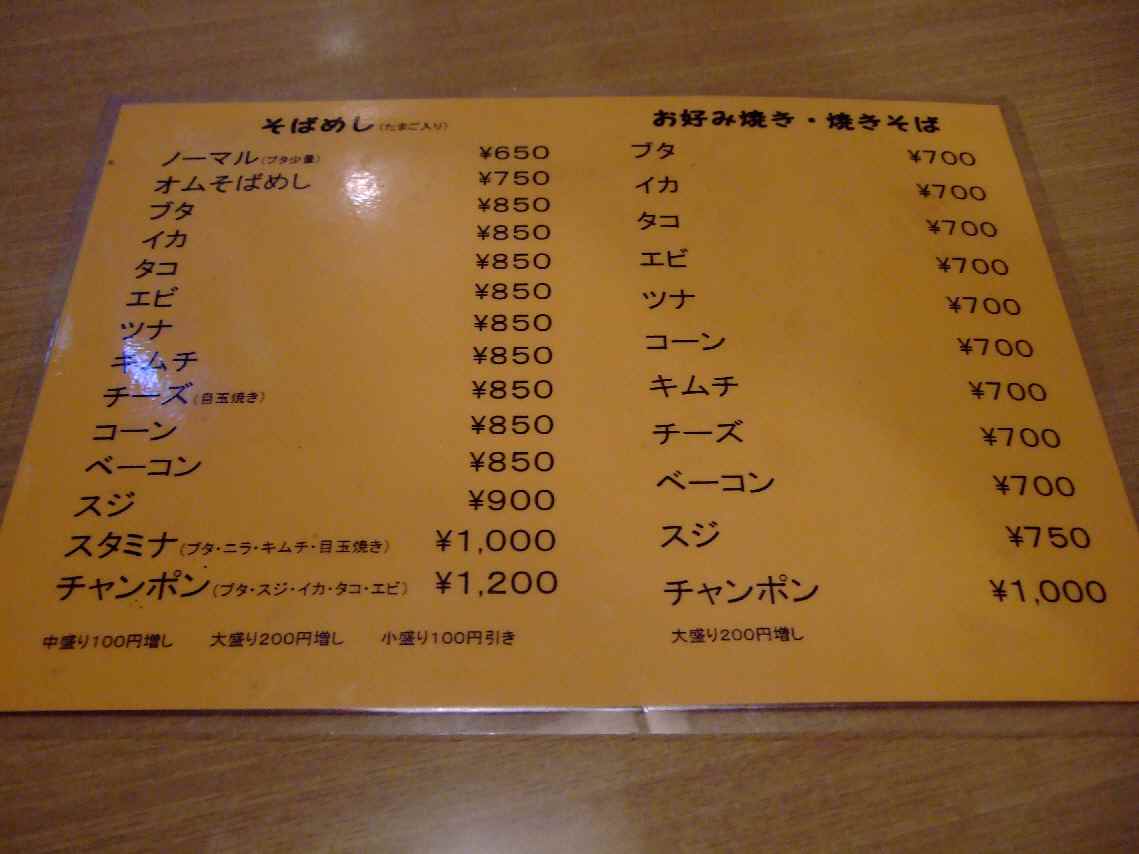 そばめし(たまご入り)
ノーマル(ブタ少量) ¥650
オムそばめし ¥750
ブタ ¥850
イカ ¥850
タコ ¥850
エビ ¥850
ツナ ¥850
キムチ ¥850
チーズ(目玉焼き) ¥850
コーン ¥850
ベーコン ¥850
スジ ¥900
スタミナ(ブタ・ニラ・キムチ・目玉焼き) ¥1,000
チャンポン(ブタ・スジ・イカ・タコ・エビ) ¥1,200
中盛り100円増し 大盛り200円増し 小盛り100円引き
お好み焼き・焼きそば
ブタ ¥700
イカ ¥700
タコ ¥700
エビ ¥700
ツナ ¥700
コーン ¥700
キムチ ¥700
チーズ ¥700
ベーコン ¥700
スジ ¥750
チャンポン ¥1,000
大盛り200円増し